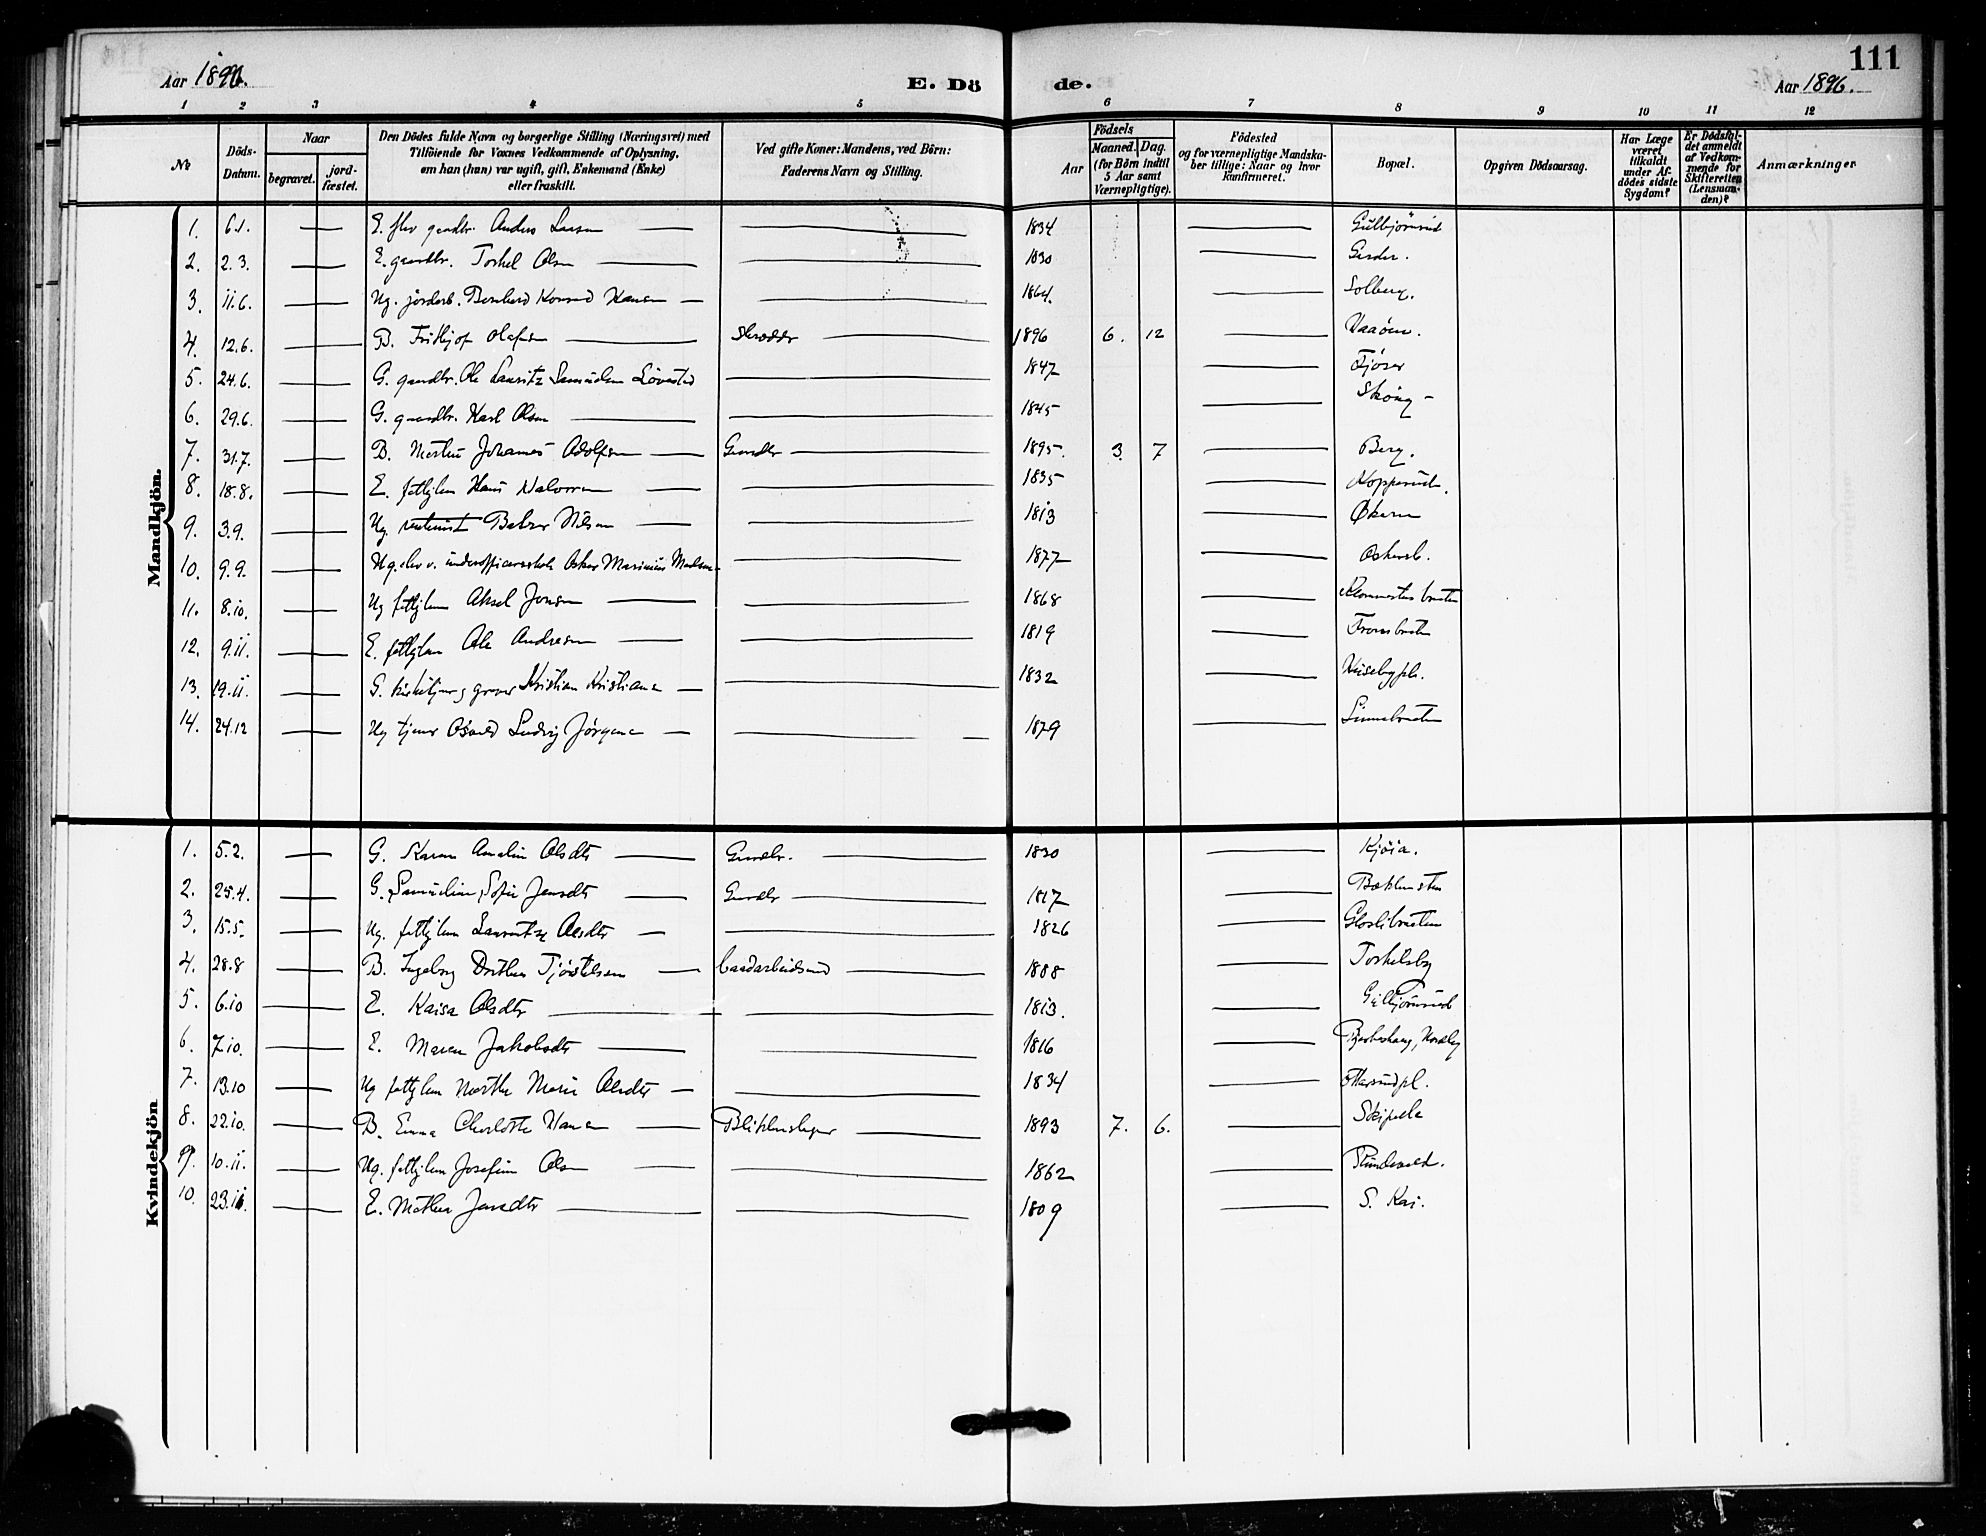 111
Aar 1896.
E. Dö de.
Aar 1896.
1 2 3 4 5 6 7 8 9 10 11 12
No
Döds-Datum.
Naar
begravet.
jord-fæstet.
Den Dödes fulde Navn og borgerlige Stilling (Næringsvei) med
Tilföiende for Voxnes Vedkommende af Oplysning,
om han (hun) var ugift, gift, Enkemand (Enke)
eller fraskilt.
Ved gifte Koner: Mandens, ved Börn:
Faderens Navn og Stilling.
Födsels
Aar
Maaned. Dag.
(for Börn indtil
5 Aar samt
Værnepligtige).
Födested
og for værnepligtige Mandska-
ber tillige: Naar og hvor
konfirmeret.
Bopæl.
Opgiven Dödsaarsag.
Har Læge
været
tilkaldt
under Af-
dödes sidste
Sygdom?
Er Dödsfal-
det anmeldt
af Vedkom-
mende for
Skifteretten
(Lensman-
den)?
Anmærkninger
Mandkjön.
1. 6.1. E. gaardbr. Anders 1834
2. 2.3. E. gaardbr. Torkel Olsen 1830
3. 11.6. Ug. Bernhard Konrad Hansen 1864. Solberg.
4. 12.6. B. Fridtjof Olafsen Skrædder 1896 6. 12 Vaaöen.
5. 24.6. G. gaardbr. Ole Lauritz Samuelsen Lövestad 1847 Fjöser
6. 29.6. G. gaardbr. Karl Olsen 1845
7. 31.7. B. Martin Johannes Adolfsen Gaardbr 1895. 3. 7 Berg.
8. 18.8. E. fattiglem Hans Halvorsen 1835 Kopperud.
9. 3.9. Ug. Nilsen 1813 Økern
10. 9.9. Ug. elev v. underofficersskole Oskar Marinius Madsen 1877
11. 8.10. Ug fattiglem Aksel Jensen 1868
12. 9.11. E. fattiglem Ole Andresen 1819
13. 19.11. G. graver Kristian Kristiansen 1832
14. 24.12 Ug tjener Osvald Ludvig Jörgensen 1879
Kvindekjön
1. 5.2. G. Karen Amalie Olsdtr Gaardbr. 1830 Kjöia.
2. 25.4. G. Samueline Sofie Jensdtr Gaardbr 1817
3. 15.5. Ug. fattiglem Lauritze Olsdtr 1826
4. 28.8 B. Ingeborg Dorthea 1888 Torkelsby
5. 6.10 E. Kaisa Olsdtr 1813.
6. 7.10. E. Maren Jakobsdtr 1816
7. 13.10 Ug fattiglem Marthe Marie Olsdtr 1834
8. 22.10. B. Emma Charlotte Hansen Blikkenslager 1893 7. 6.
9. 10.11. Ug. fattiglem Josefine Olsen 1862
10. 23.11. E. Mathea Jensdtr 1809